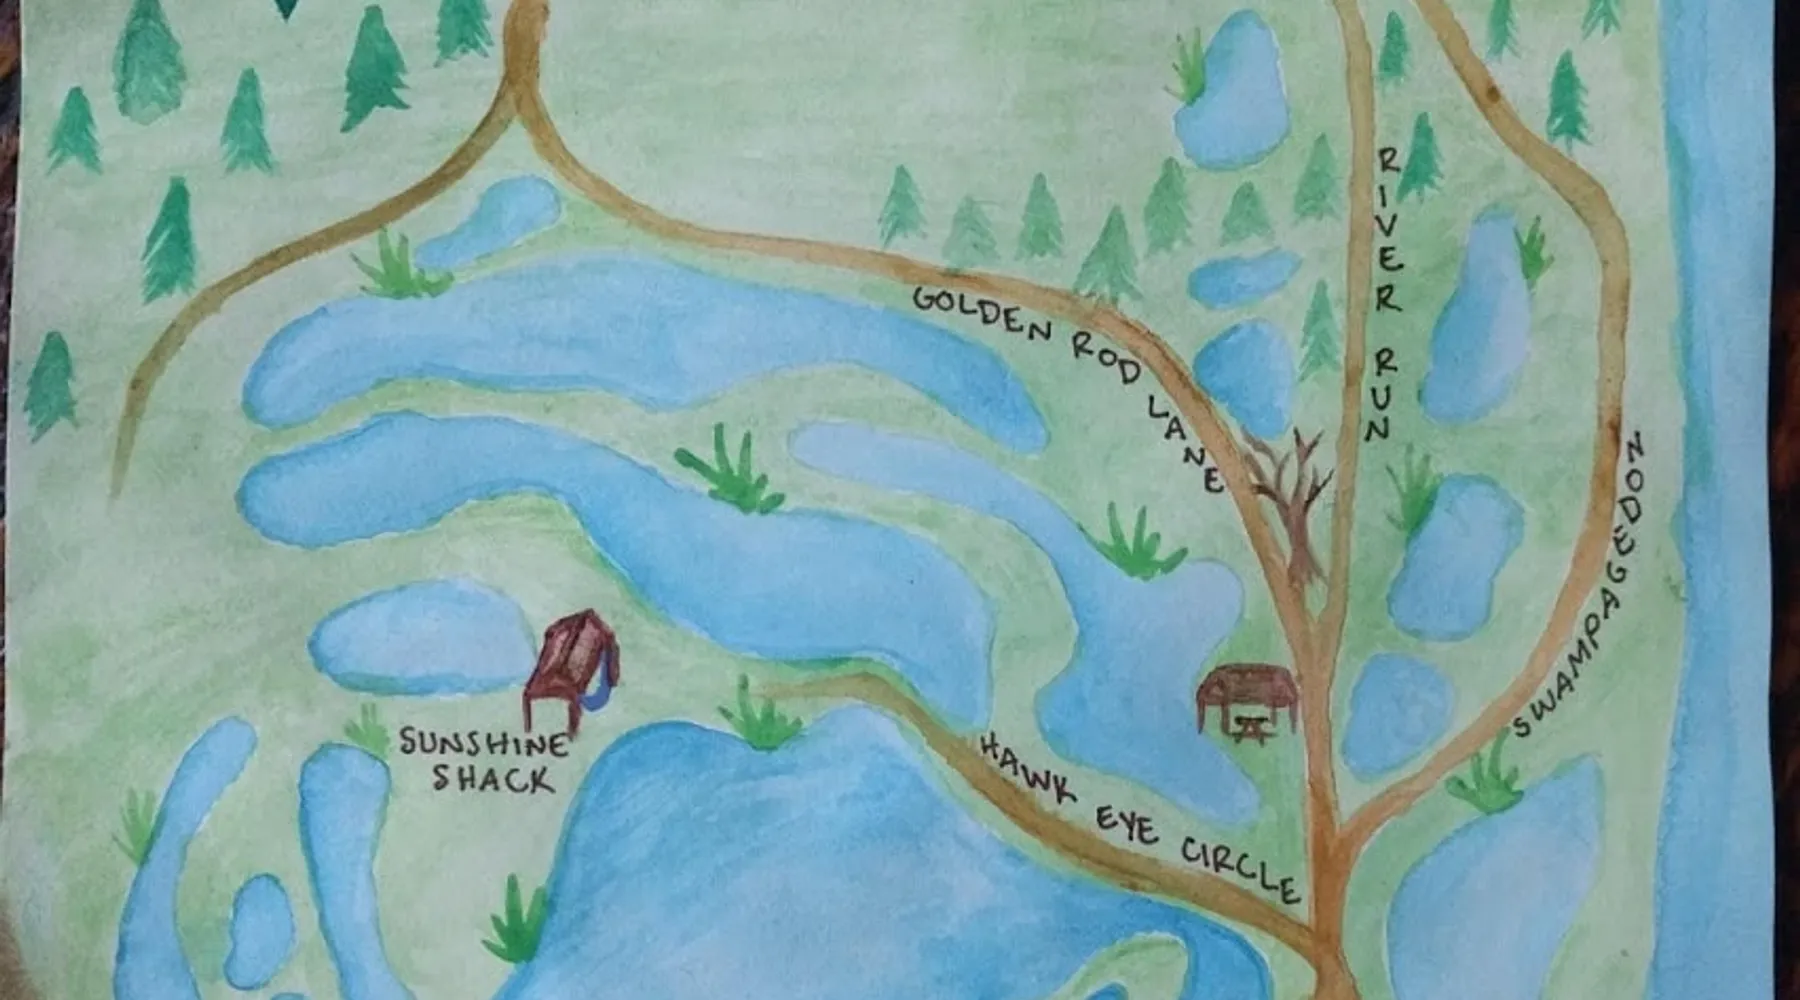 GOLDEN ROD LANE
RIVER RUN
SWAMPAGEDON
SUNSHINE
SHACK
HAWK EYE CIRCLE